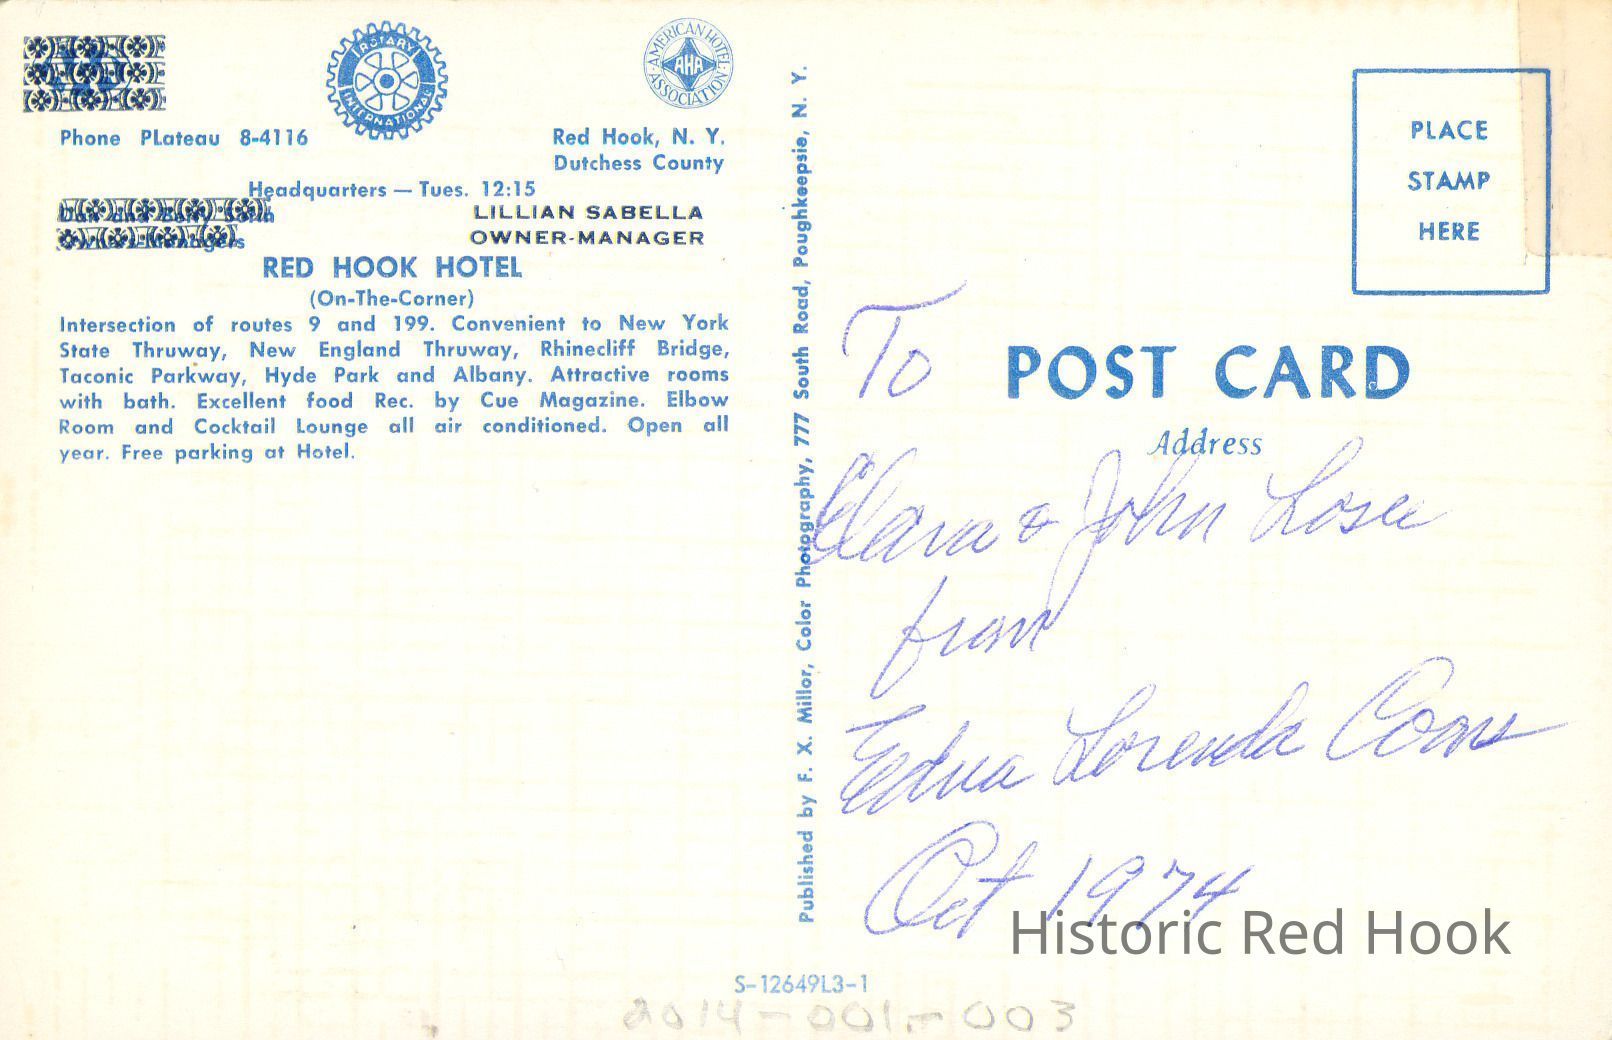 ROTARY
INTERNATIONAL
AMERICAN HOTEL
AHA
ASSOCIATION
Phone PLateau 8-4116
Red Hook, N. Y.
Dutchess County
Headquarters — Tues. 12:15
LILLIAN SABELLA
OWNER-MANAGER
RED HOOK HOTEL
(On-The-Corner)
Intersection of routes 9 and 199. Convenient to New York
State Thruway, New England Thruway, Rhinecliff Bridge,
Taconic Parkway, Hyde Park and Albany. Attractive rooms
with bath. Excellent food Rec. by Cue Magazine. Elbow
Room and Cocktail Lounge all air conditioned. Open all
year. Free parking at Hotel.
Published by F. X. Millor, Color Photography, 777 South Road, Poughkeepsie, N. Y.
PLACE
STAMP
HERE
POST CARD
Address
To
Clara & John Losee
from
Edna Lorenda Coons
Oct 1974
Historic Red Hook
S-12649L3-1
2014-001-003